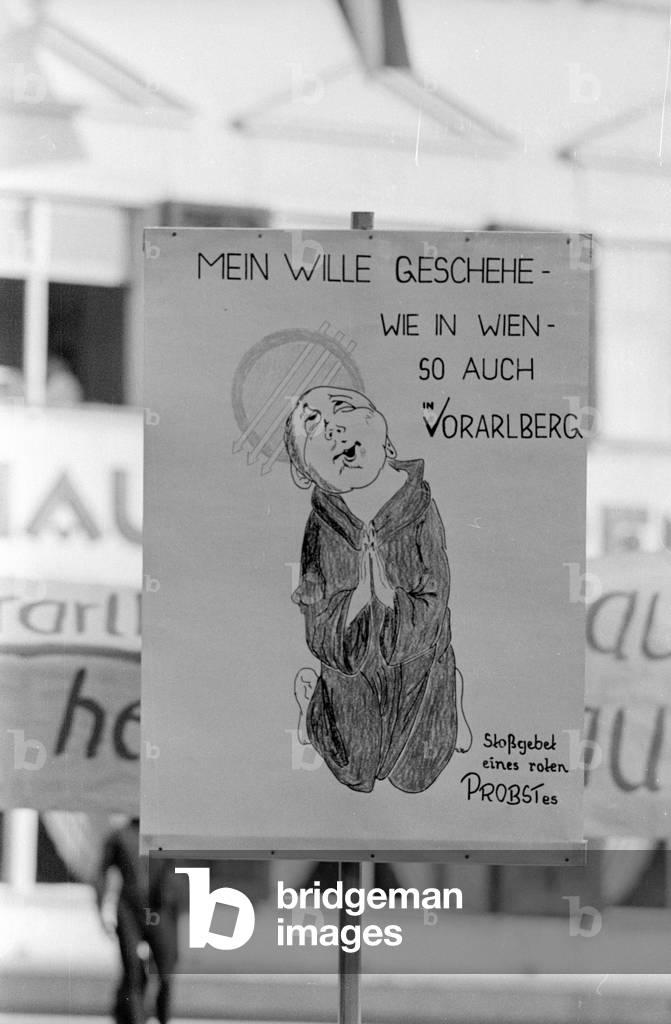 MEIN WILLE GESCHEHE -
WIE IN WIEN -
SO AUCH
IN VORARLBERG
Stoßgebet
eines roten
PROBSTes
HAU
he
au
au
b bridgeman
images